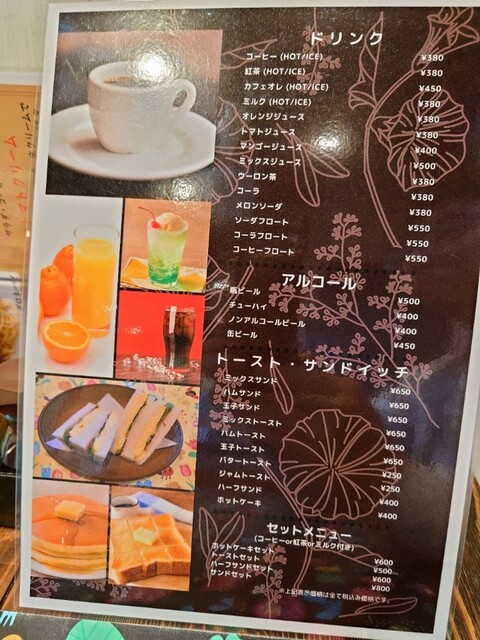 ドリンク
コーヒー (HOT/ICE) ¥380
紅茶 (HOT/ICE) ¥380
カフェオレ (HOT/ICE) ¥450
ミルク (HOT/ICE) ¥380
オレンジジュース ¥380
トマトジュース ¥380
マンゴージュース ¥400
ミックスジュース ¥500
ウーロン茶 ¥380
コーラ ¥380
メロンソーダ ¥380
ソーダフロート ¥550
コーラフロート ¥550
コーヒーフロート ¥550
アルコール
瓶ビール ¥500
チューハイ ¥400
ノンアルコールビール ¥400
缶ビール ¥450
トースト・サンドイッチ
ミックスサンド ¥650
ハムサンド ¥650
玉子サンド ¥650
ミックストースト ¥650
ハムトースト ¥650
玉子トースト ¥650
バタートースト ¥250
ジャムトースト ¥250
ハーフサンド ¥400
ホットケーキ ¥400
セットメニュー
(コーヒーor紅茶orミルク付き)
ホットケーキセット ¥600
トーストセット ¥500
ハーフサンドセット ¥600
サンドセット ¥800
※上記表示価格は全て税込み価格です。